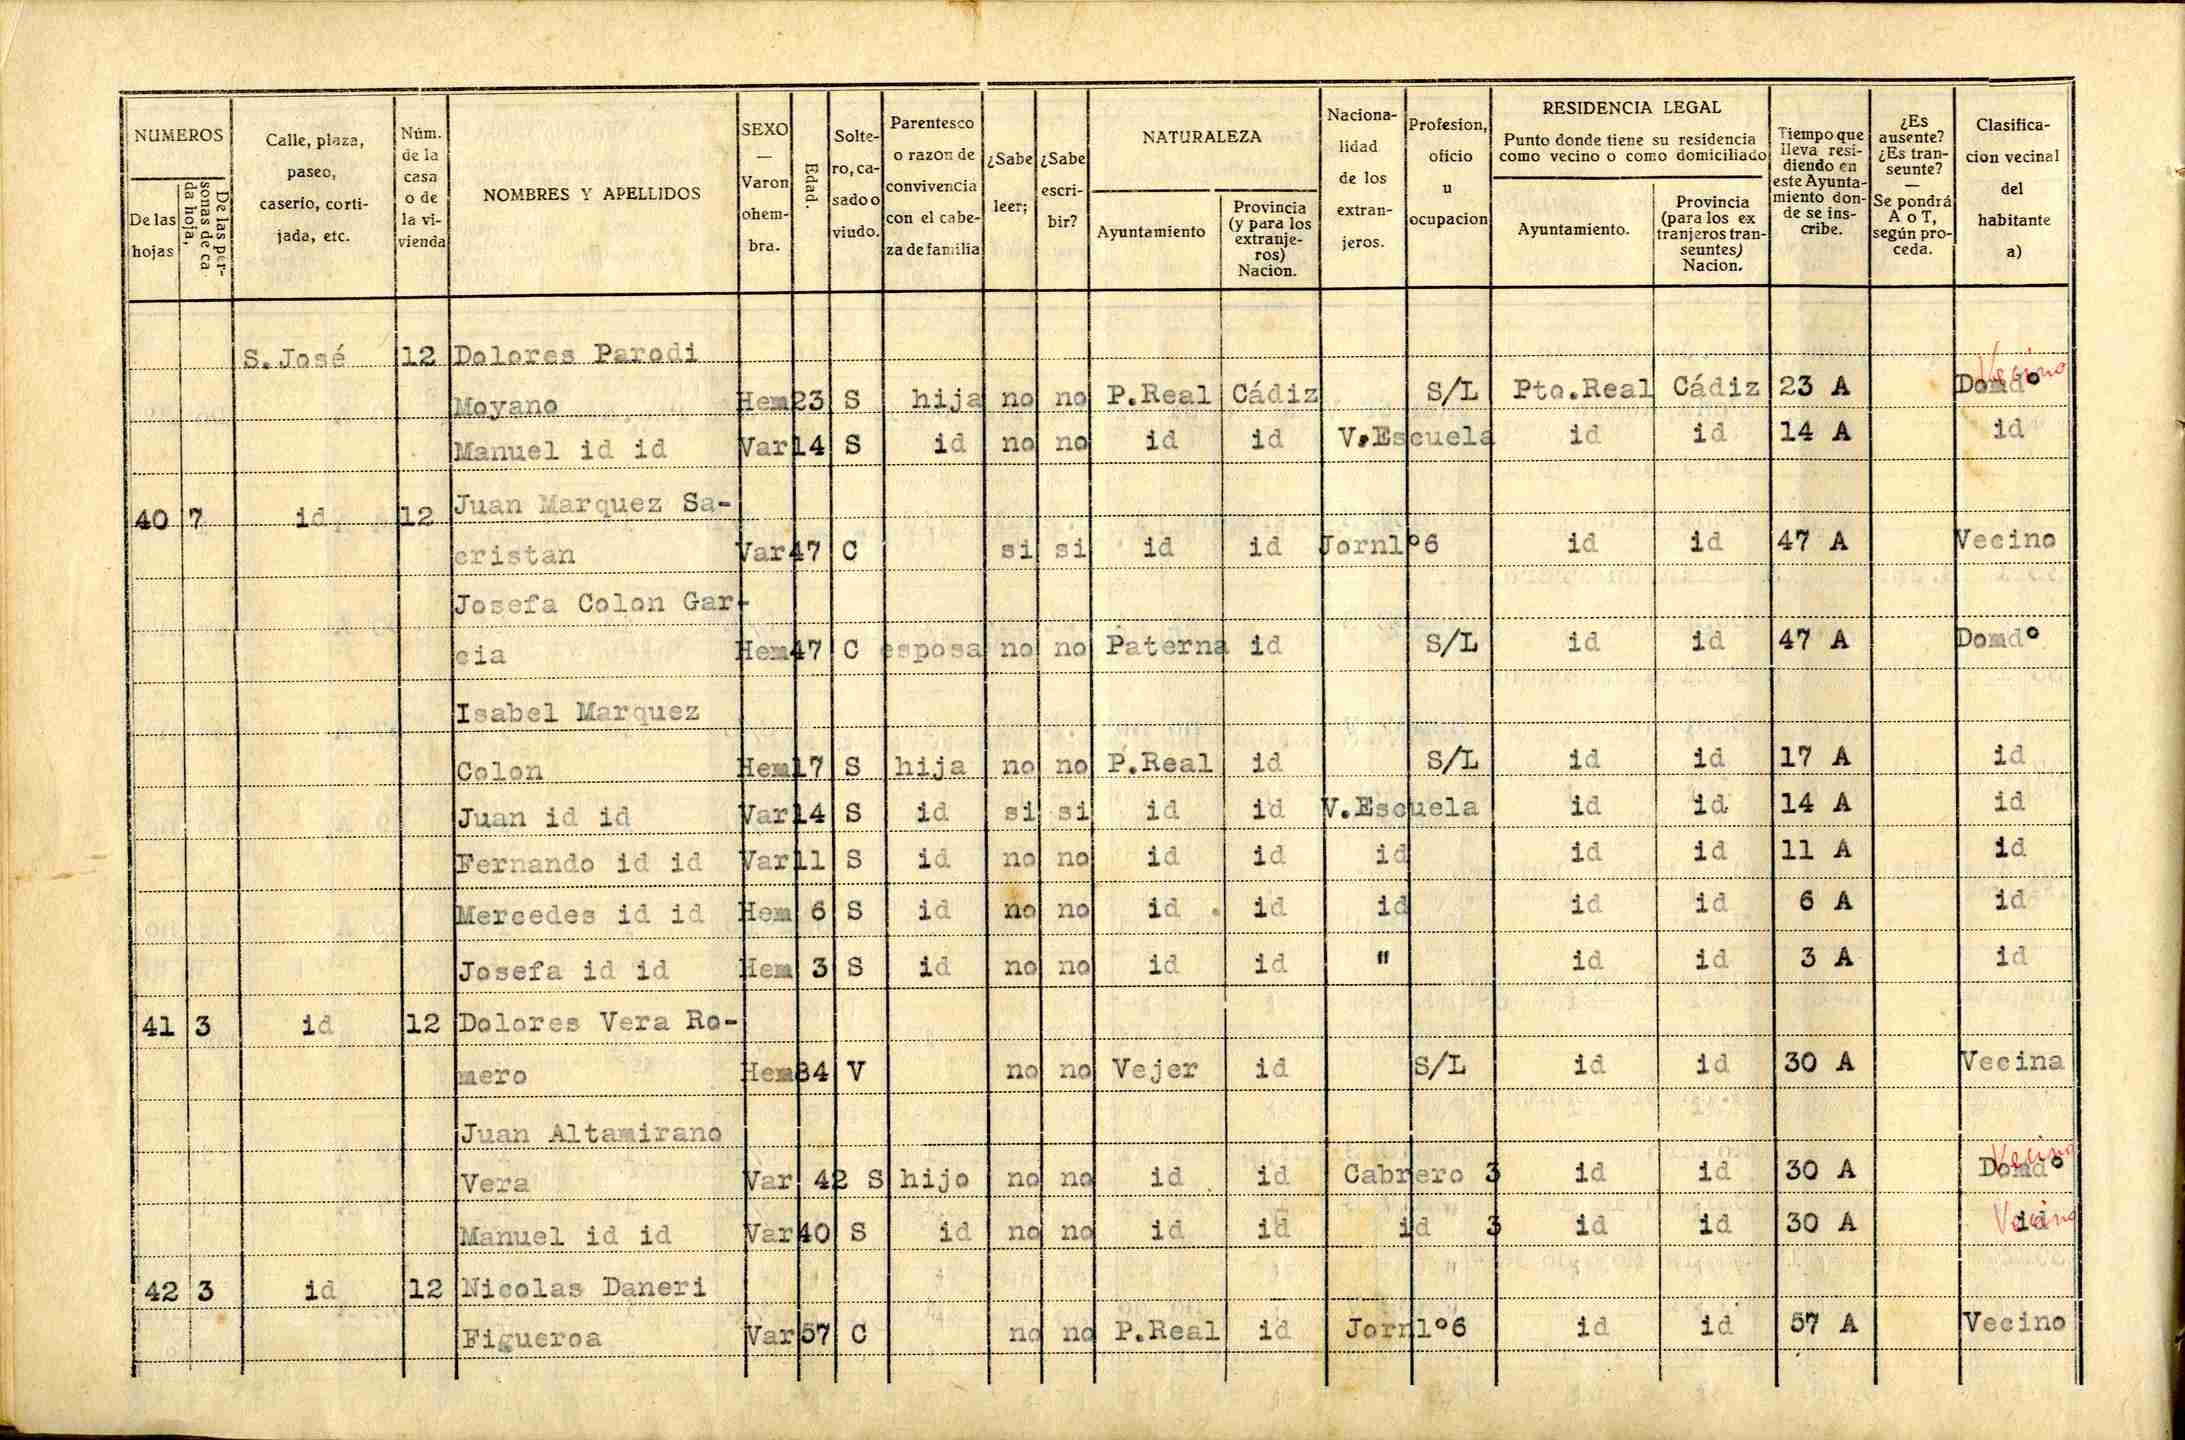 NUMEROS
De las hojas
De las personas de cada hoja,
Calle, plaza, paseo, caserio, cortijada, etc.
Núm. de la casa o de la vivienda
NOMBRES Y APELLIDOS
SEXO — Varon ohembra.
Edad.
Soltero, casado o viudo.
Parentesco o razon de convivencia con el cabeza de familia
¿Sabe leer;
¿Sabe escribir?
NATURALEZA
Ayuntamiento
Provincia (y para los extranjeros) Nacion.
Nacionalidad de los extranjeros.
Profesion, oficio u ocupacion
RESIDENCIA LEGAL
Punto donde tiene su residencia como vecino o como domiciliado
Ayuntamiento.
Provincia (para los extranjeros transeuntes) Nacion.
Tiempo que lleva residiendo en este Ayuntamiento donde se inscribe.
¿Es ausente? ¿Es transeunte? — Se pondrá A o T, según proceda.
Clasificacion vecinal del habitante a)
S.José 12 Dolores Parodi
Vecino
Moyano Hem 23 S hija no no P.Real Cádiz S/L Pto.Real Cádiz 23 A Domdº
Manuel id id Var 14 S id no no id id V.Escuela id id 14 A id
40 7 id 12 Juan Marquez Sa-
cristan Var 47 C si si id id Jornlº6 id id 47 A Vecino
Josefa Colon Gar-
cia Hem 47 C esposa no no Paterna id S/L id id 47 A Domdº
Isabel Marquez
Colon Hem 17 S hija no no P.Real id S/L id id 17 A id
Juan id id Var 14 S id si si id id V.Escuela id id 14 A id
Fernando id id Var 11 S id no no id id id id id 11 A id
Mercedes id id Hem 6 S id no no id id id id id 6 A id
Josefa id id Hem 3 S id no no id id " id id 3 A id
41 3 id 12 Dolores Vera Ro-
mero Hem 84 V no no Vejer id S/L id id 30 A Vecina
Juan Altamirano
Vecino
Vera Var 42 S hijo no no id id Cabrero 3 id id 30 A Domdº
Manuel id id Var 40 S id no no id id id 3 id id 30 A id Vecino
42 3 id 12 Nicolas Daneri
Figueroa Var 57 C no no P.Real id Jornlº6 id id 57 A Vecino